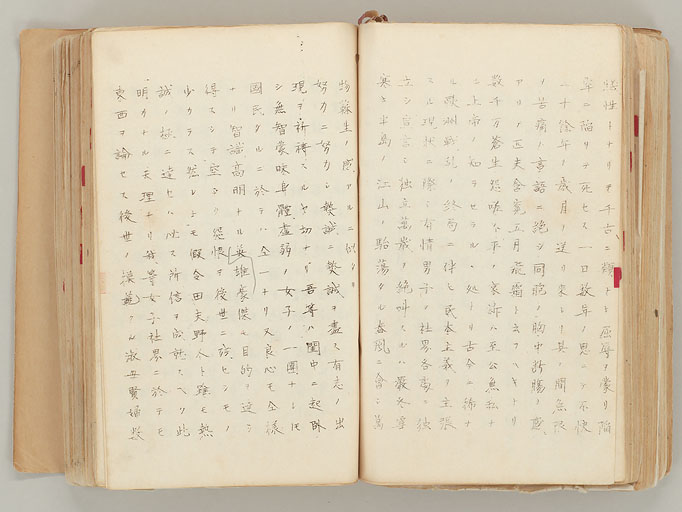 犠牲トナリテ千古ニ類ナキ屈辱ヲ蒙リ陥
穽ニ陥リテ死セス一日数年ノ思ニテ不快
一十餘年ノ歳月ヲ送リ来レリ其ノ間無限
ノ苦痛ハ言語ニ絶シ同胞ノ胸中断腸ノ感
アリ匹夫含冤五月飛霜ト云フヘキナリ
数千万蒼生怨嗟不平ノ哀訴ハ至公無私ナ
ル上帝ノ知ラセラルヽ処ナリ古今ニ稀ナ
ル欧州戦乱ノ終局ニ伴ヒ民本主義ノ主張
スル現状ニ際シ有情男子ノ社界各處ニ独
立シ宣言シ独立萬歳ノ絶叫スルハ厳冬雪
寒キ半島ノ江山ノ駘蕩タル春風ニ會シ萬
物蘇生ノ感アルニ似タリ
努力ニ努力シ熱誠ニ熱誠ヲ盡ス有志ノ出
現ヲ祈祷スルヤ切ナリ吾等ハ閨中ニ起臥
シ無智蒙昧身體虚弱ノ女子ノ一團ナレモ
國民タルニ於テハ全一ナリ又良心モ全様
ナリ智識高明ナル英雄豪傑モ目的ヲ達シ
得スシテ空シク怨恨ヲ後世ニ該セシモノ
少カラス然レトモ假令田夫野人ト雖モ熱
誠ノ極ニ達セハ必ス所信ヲ成就スヘク此
明カナル天理ナリ我等女子社界ニ於テモ
東西ヲ論セス後世ノ模範タル淑女賢婦数